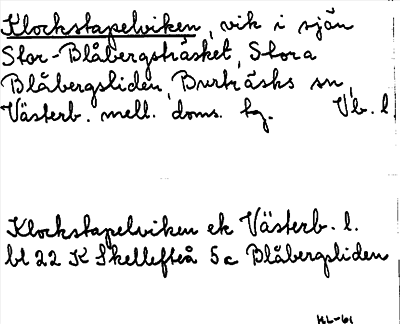 Klockstapelviken, vik i sjön
Stor-Blåbergsträsket, Stora
Blåbergsliden, Burträsks sn,
Västerb. mell. doms. hg. Vb. l.
Klockstapelviken ek Västerb. l.
bl 22 K Skellefteå 5c Blåbergsliden